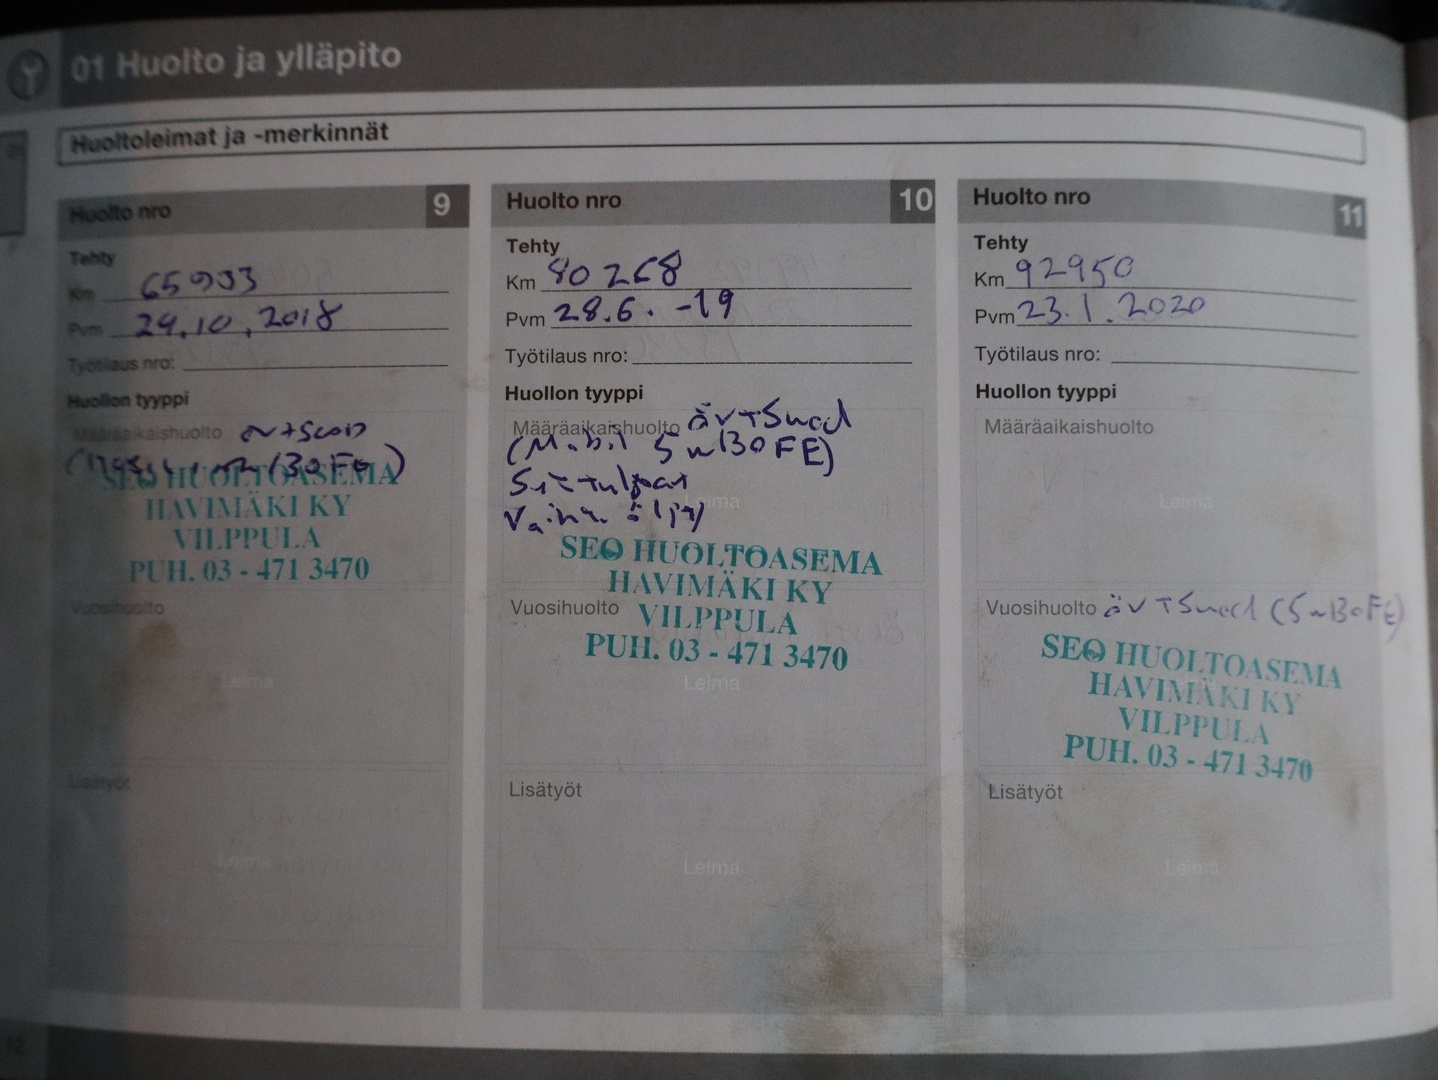 01 Huolto ja ylläpito
Huoltoleimat ja -merkinnät
Huolto nro 9
Tehty
Km 65933
Pvm 29.10.2018
Työtilaus nro:
Huollon tyyppi
Määräaikaishuolto
SEO HUOLTOASEMA
HAVIMÄKI KY
VILPPULA
PUH. 03 - 471 3470
Vuosihuolto
Leima
Lisätyöt
Leima
Huolto nro 10
Tehty
Km 80268
Pvm 28.6. -19
Työtilaus nro:
Huollon tyyppi
Määräaikaishuolto öv+Suod
(Mobil 5w30FE)
Sytytulpat
Vaiht. öljy
Leima
SEO HUOLTOASEMA
HAVIMÄKI KY
Vuosihuolto VILPPULA
PUH. 03 - 471 3470
Leima
Lisätyöt
Leima
Huolto nro 11
Tehty
Km 92950
Pvm 23.1.2020
Työtilaus nro:
Huollon tyyppi
Määräaikaishuolto
Leima
Vuosihuolto öv+Suod (5w30FE)
SEO HUOLTOASEMA
HAVIMÄKI KY
VILPPULA
PUH. 03 - 471 3470
Lisätyöt
Leima
12